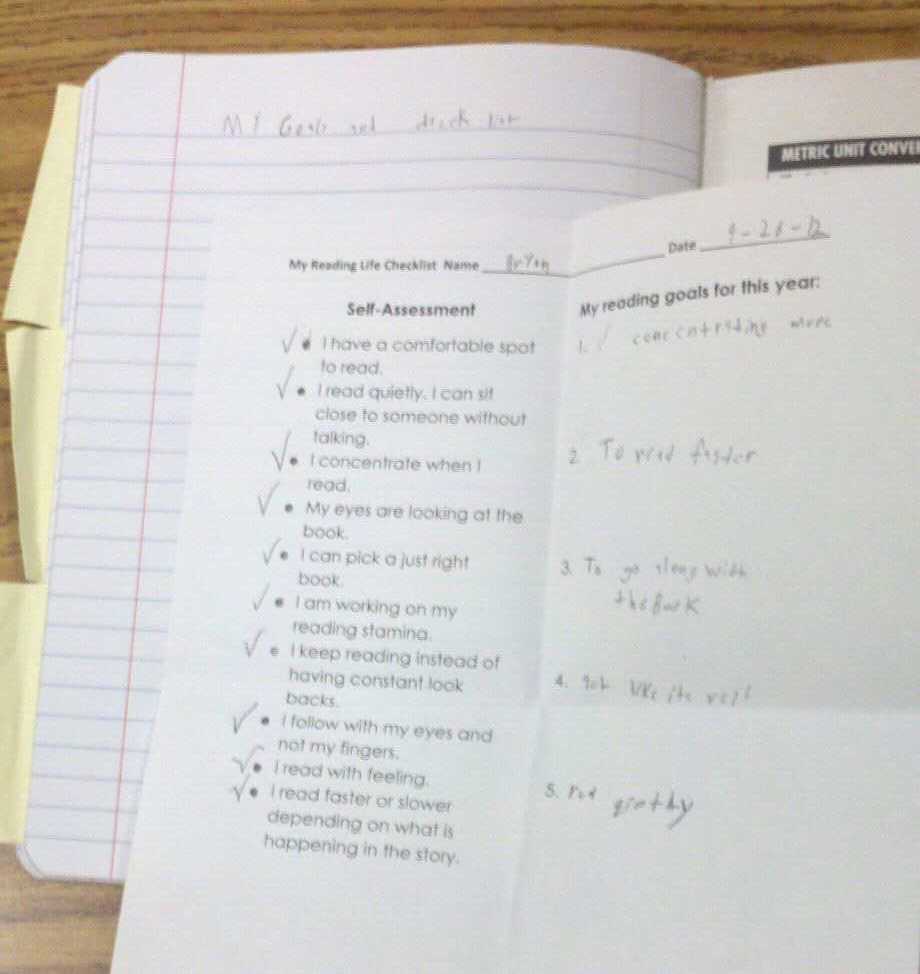 My Goals and check list
METRIC UNIT CONVE
My Reading Life Checklist Name Bryan
Date
Self-Assessment
I have a comfortable spot
to read.
I read quietly. I can sit
close to someone without
talking.
I concentrate when I
read.
My eyes are looking at the
book.
I can pick a just right
book.
I am working on my
reading stamina.
I keep reading instead of
having constant look
backs.
I follow with my eyes and
not my fingers.
I read with feeling.
I read faster or slower
depending on what is
happening in the story.
My reading goals for this year:
1. concentrating more
2 To read faster
3. To go along with
the Book
4. like its
5.